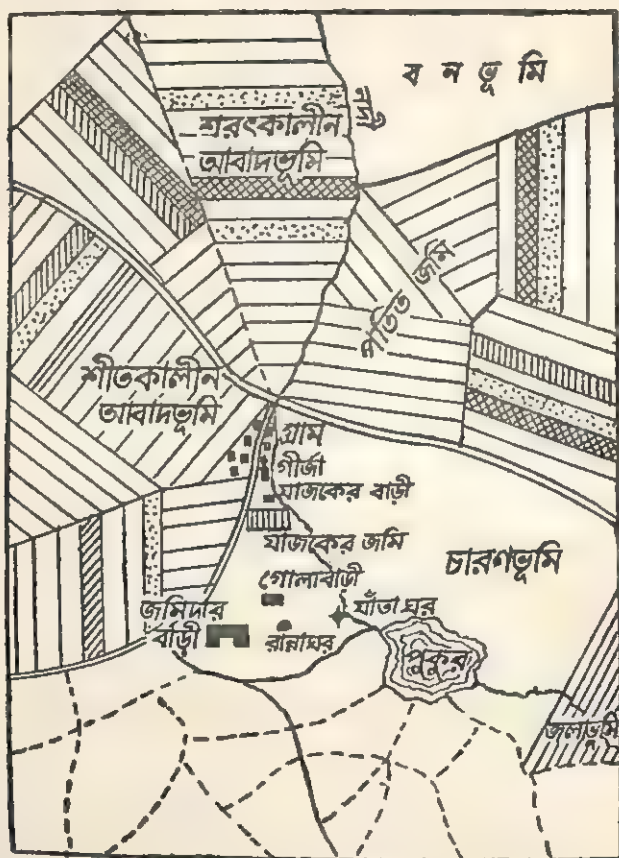 বনভূমি
নদী
শরৎকালীন
আবাদভূমি
পতিত জমি
শীতকালীন
আবাদভূমি
গ্রাম
গীর্জা
যাজকের বাড়ী
যাজকের জমি
চারণভূমি
গোলাবাড়ী
জমিদার
বাড়ী
রান্নাঘর
যাঁতা ঘর
পুকুর
জলাভূমি